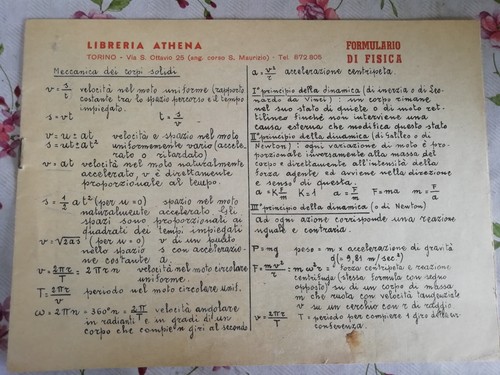 LIBRERIA ATHENA
TORINO - Via S. Ottavio 25 (ang. corso S. Maurizio) - Tel. 872.805
FORMULARIO
DI FISICA
Meccanica dei corpi solidi
v = s/t velocità nel moto uniforme (rapporto
costante tra lo spazio percorso e il tempo
impiegato.
s = vt t = s/v
v = u ± at velocità e spazio nel moto
s = ut ± at² uniformemente vario (accele-
rato o ritardato)
v = at velocità nel moto naturalmente
accelerato, v è direttamente
proporzionale al tempo.
s = 1/2 at² (per u = 0) spazio nel moto
naturalmente accelerato. Gli
spazi sono proporzionali ai
quadrati dei tempi impiegati
v = √2as (per u = 0) v di un punto
nello spazio s con accelerazio-
ne costante a.
v = 2πr/T = 2πrn velocità nel moto circolare
uniforme.
T = 2πr/v periodo nel moto circolare unif.
ω = 2πn = 360°n = 2π/T velocità angolare
in radianti e in gradi di un
corpo che compie n giri al secondo
a = v²/r accelerazione centripeta.
I° principio della dinamica (di inerzia o di Leo-
nardo da Vinci): un corpo rimane
nel suo stato di quiete o di moto ret-
tilineo finché non interviene una
causa esterna che modifica questo stato
II° principio della dinamica (di Galileo o di
Newton): ogni variazione di moto è pro-
porzionale inversamente alla massa del
corpo e direttamente all'intensità della
forza agente ed avviene nella direzione
e senso di questa.
a = K F/m K = 1 da a = F/m F = ma m = F/a
III° principio della dinamica (o di Newton)
ad ogni azione corrisponde una reazione
uguale e contraria.
P = mg peso = m × accelerazione di gravità
g (= 9,81 m/sec²)
F = mv²/r = mω²r = forza centripeta e reazione
centrifuga (stessa formula con segno
opposto) su di un corpo di massa
m che ruota con velocità tangenziale
v su un cerchio con r di raggio
v = 2πr/T T = periodo per compiere 1 giro della cir-
conferenza.